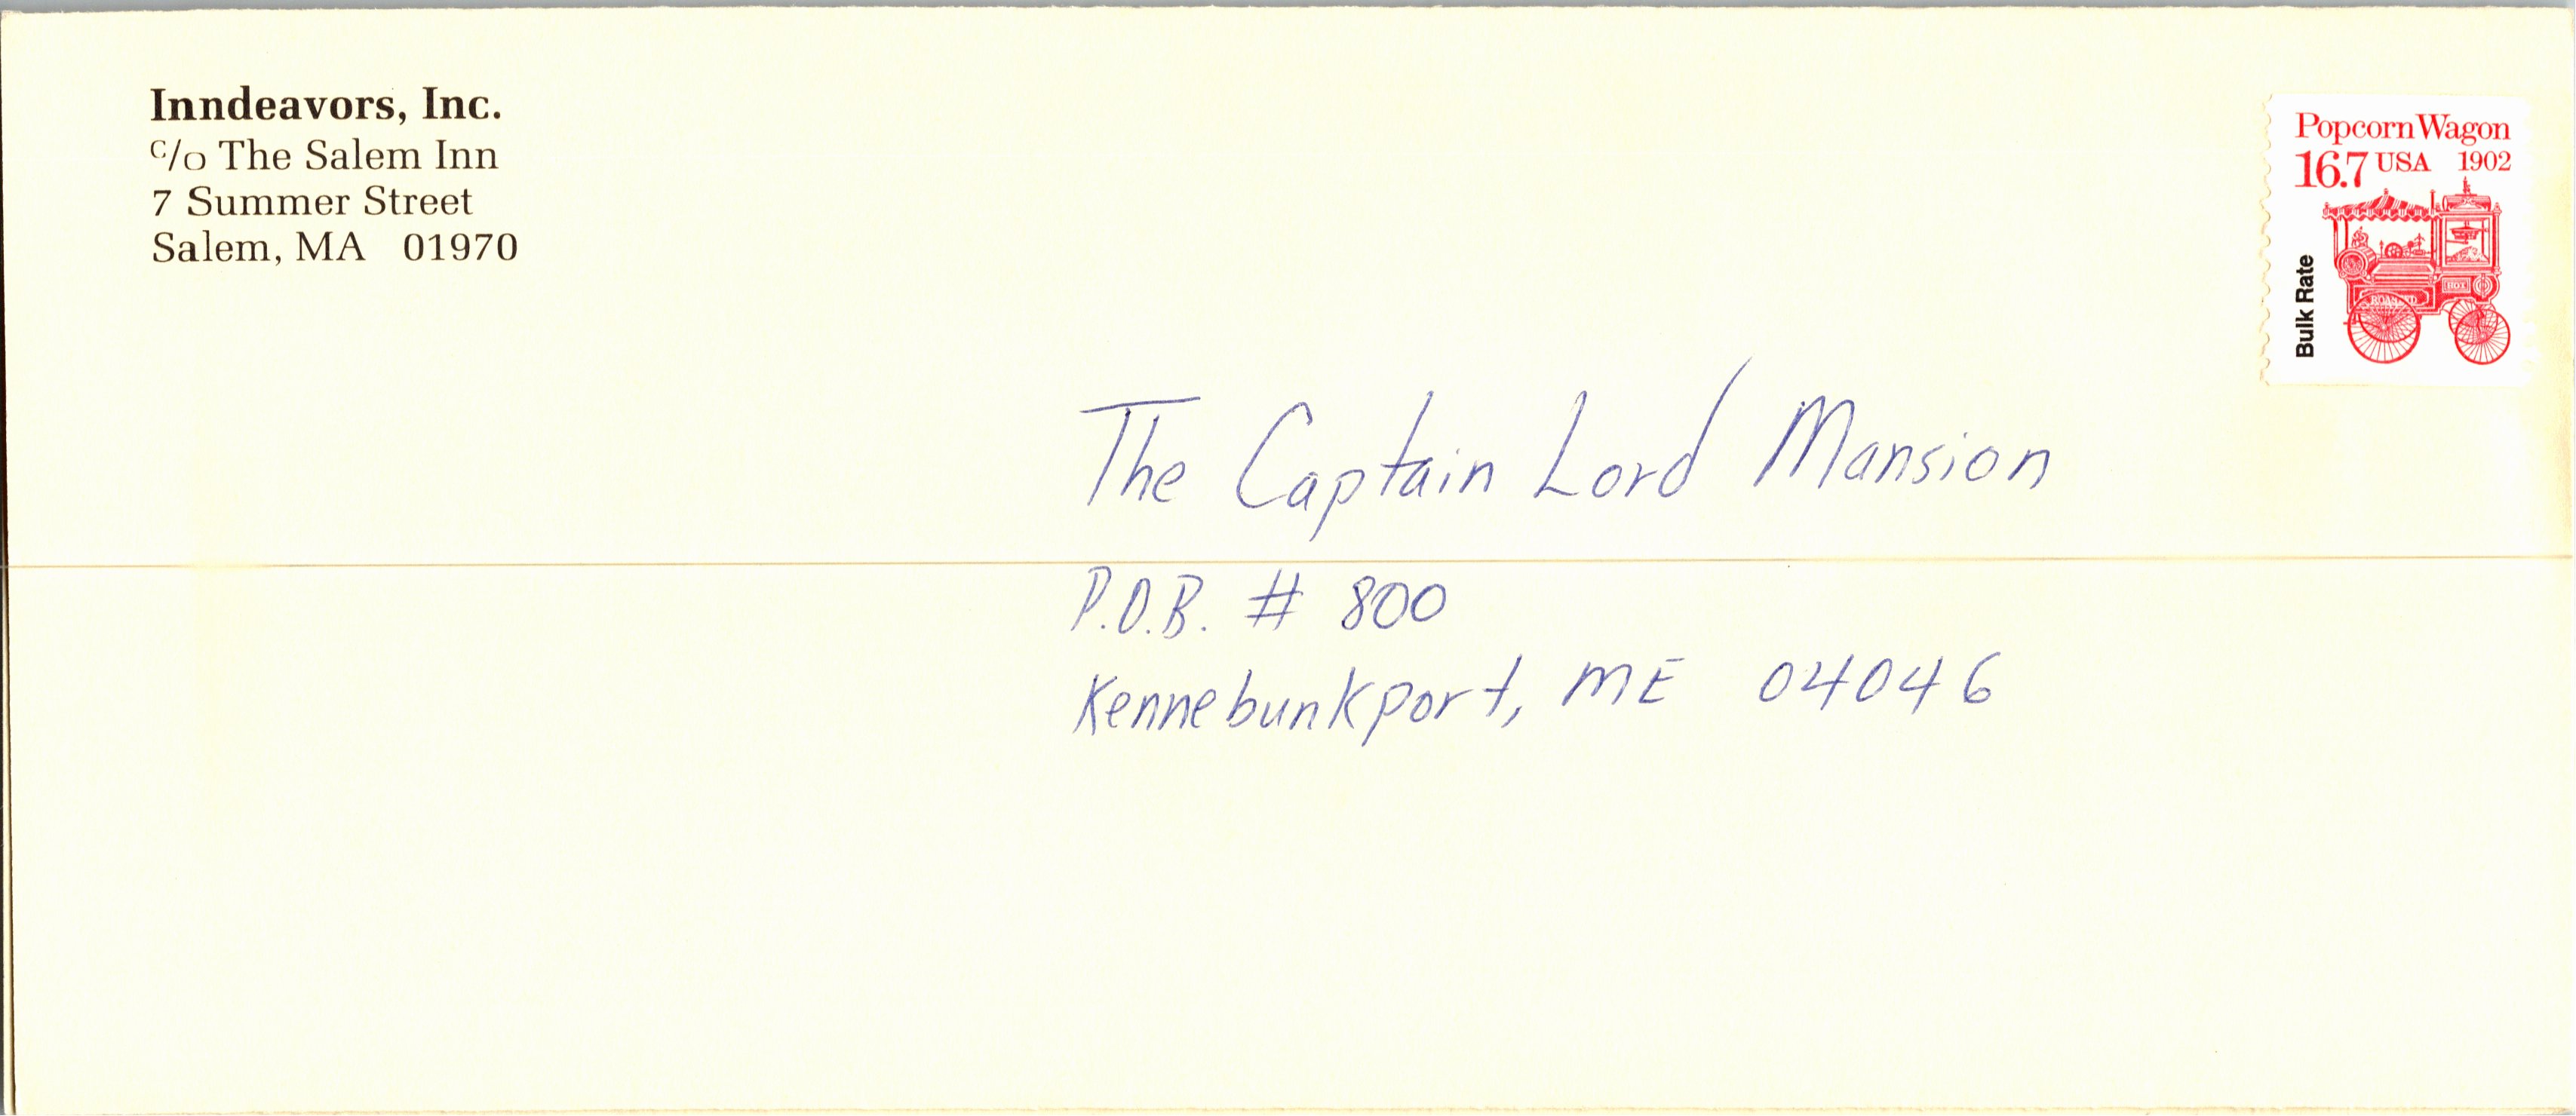 Inndeavors, Inc.
c/o The Salem Inn
7 Summer Street
Salem, MA 01970
Popcorn Wagon
16.7 USA 1902
Bulk Rate
ROASTED
HOT
The Captain Lord Mansion
P.O.B. # 800
Kennebunkport, ME 04046